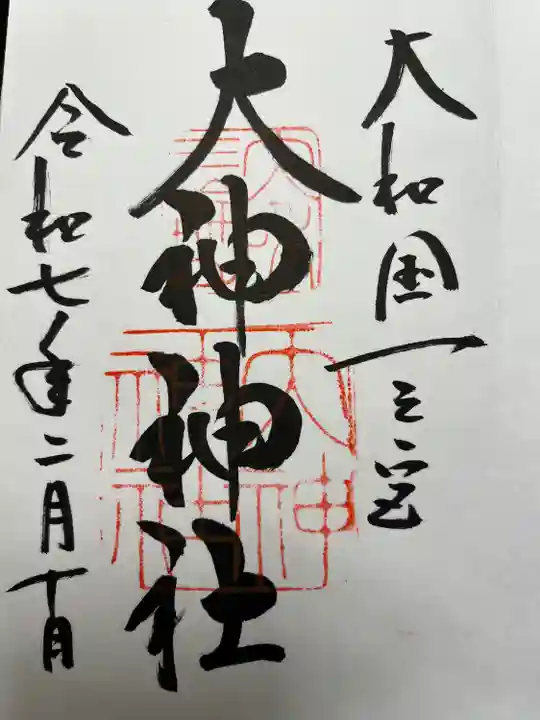 大和国一之宮
大神神社
令和七年二月十日
大神神社